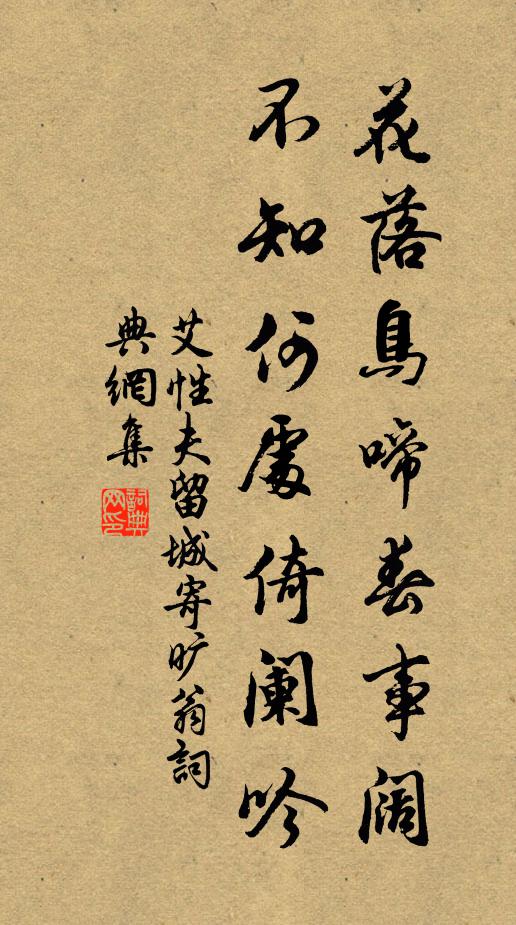 花落鳥啼春事阔
不知何處倚阑吟
艾性夫留城寄旷翁詞
典網集
詞典網印